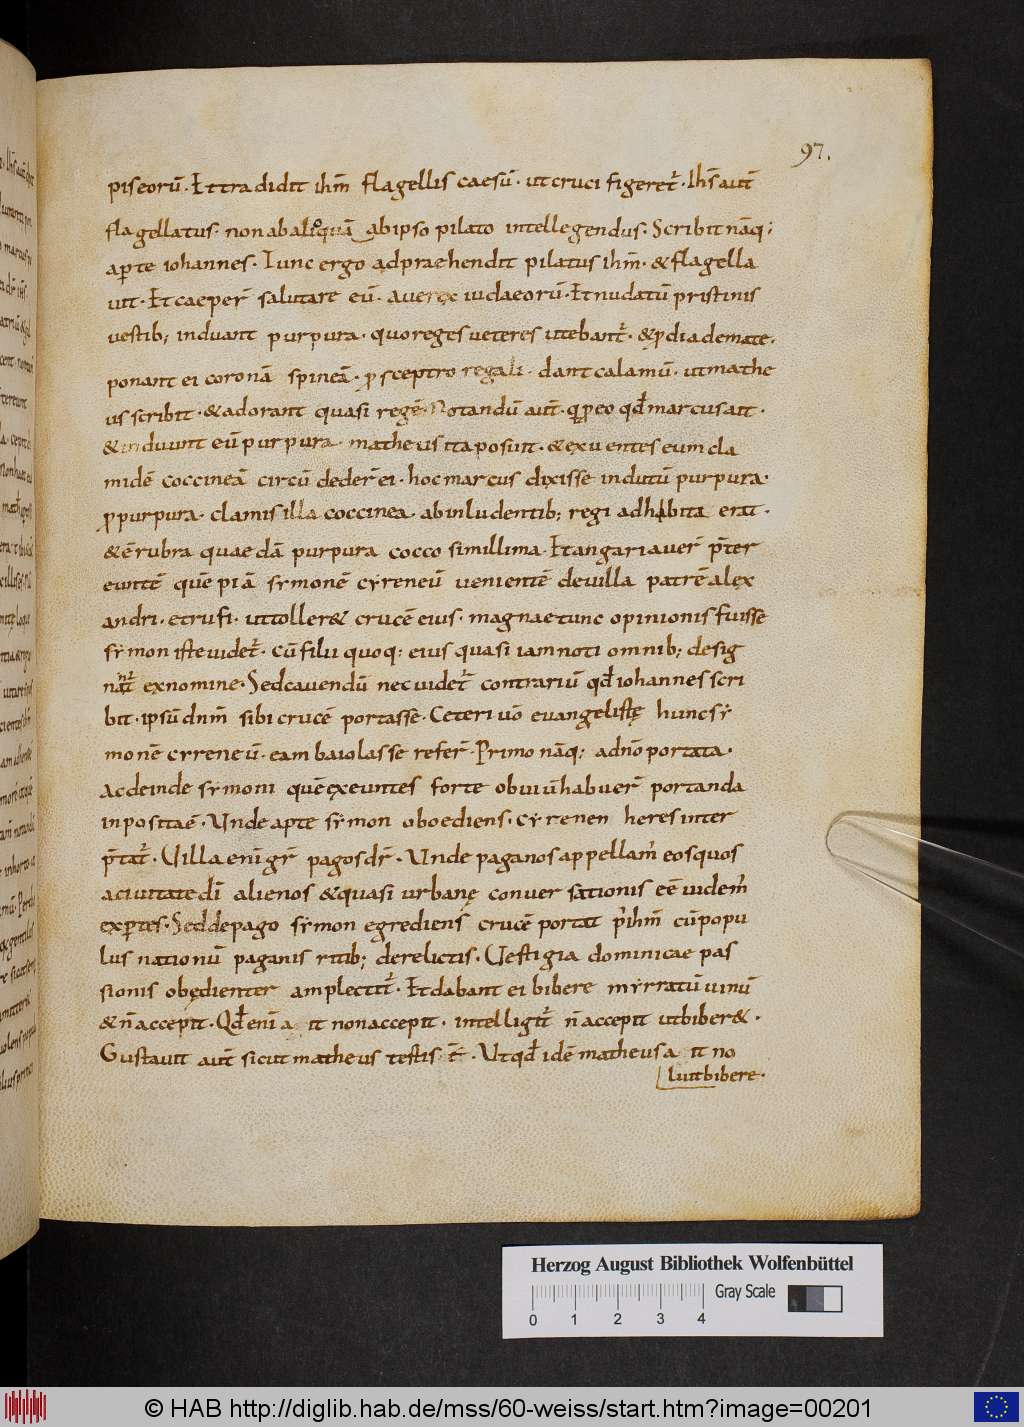 97.
piseorū. Et tradidit ihm̄ flagellis caesū. ut cruci figeret᷑. Ihs̄ aut̄
flagellatus. non ab alioquā ab ipso pilato intellegendus. Scribit nāq;
aꝑte iohannes. Tunc ergo adpraehendit pilatus ihm̄. & flagella
uit. Et caeper̄ salutare eū. aue rex iudaeorū. Et nudatū pristinis
vestib; induant purpura. quo reges veteres utebant᷑. & ꝓ diademate.
ponant ei coronā spineā. ꝓ sceptro regali. dant calamū. ut mathe
us scribit. & adorant quasi regē. Notandū aut̄. qꝑ eo qd̄ marcus ait.
& induunt eū purpura. matheus ita posuit. & exuentes eum cla
midē coccineā circū deder̄ ei. hoc marcus dixisse indutū purpura.
ꝓ purpura. clamis illa coccinea. ab inludentib; regi adhibita erat.
& ē rubra quae dā purpura cocco simillima. Et angariauer̄ p̄ter
euntē quēpiā sẏmonē cẏreneū uenientē de uilla patrē alex
andri. et rufi. ut toller& crucē eius. magnae tunc opinionis fuisse
sẏmon iste uidet᷑. cū filii quoq: eius quasi iam noti omnib; desig
nāt᷑ ex nomine. Sed cavendū nec uidet᷑ contrariū qd̄ iohannes scri
bit. ipsū dnm̄ sibi crucē portasse. Ceteri uō evangelistę hunc sẏ
monē cẏreneū. eam baiolasse refer̄. Primo nāq; a dn̄o portata.
Ac deinde sẏmoni quē exeuntes forte obuiū habuer̄ portanda
inpositaē. Unde apte sẏmon oboediens. cẏrenen heres inter
p̄tat᷑. Uilla enī gr̄ pagos dr̄. Unde paganos appellam᷑ eos quos
a ciuitate dī alienos & quasi urbanę conversationis eē uidem᷑
exꝑtes. Sed de pago sẏmon egrediens crucē portat p᷑ ihm̄ cū popu
lus nationū paganis ritib; derelictis. Uestigia dominicae pas
sionis obędienter amplectit᷑. Et dabant ei bibere mẏrratū uinū
& n̄ accepit. Qd̄ enī a it non accepit. intelligit᷑ n̄ accepit ut biber&.
Gustauit aut̄ sicut matheus testis ē. Ut qd̄ idē matheus a it no
luit bibere.
Herzog August Bibliothek Wolfenbüttel
Gray Scale
0 1 2 3 4
© HAB http://diglib.hab.de/mss/60-weiss/start.htm?image=00201